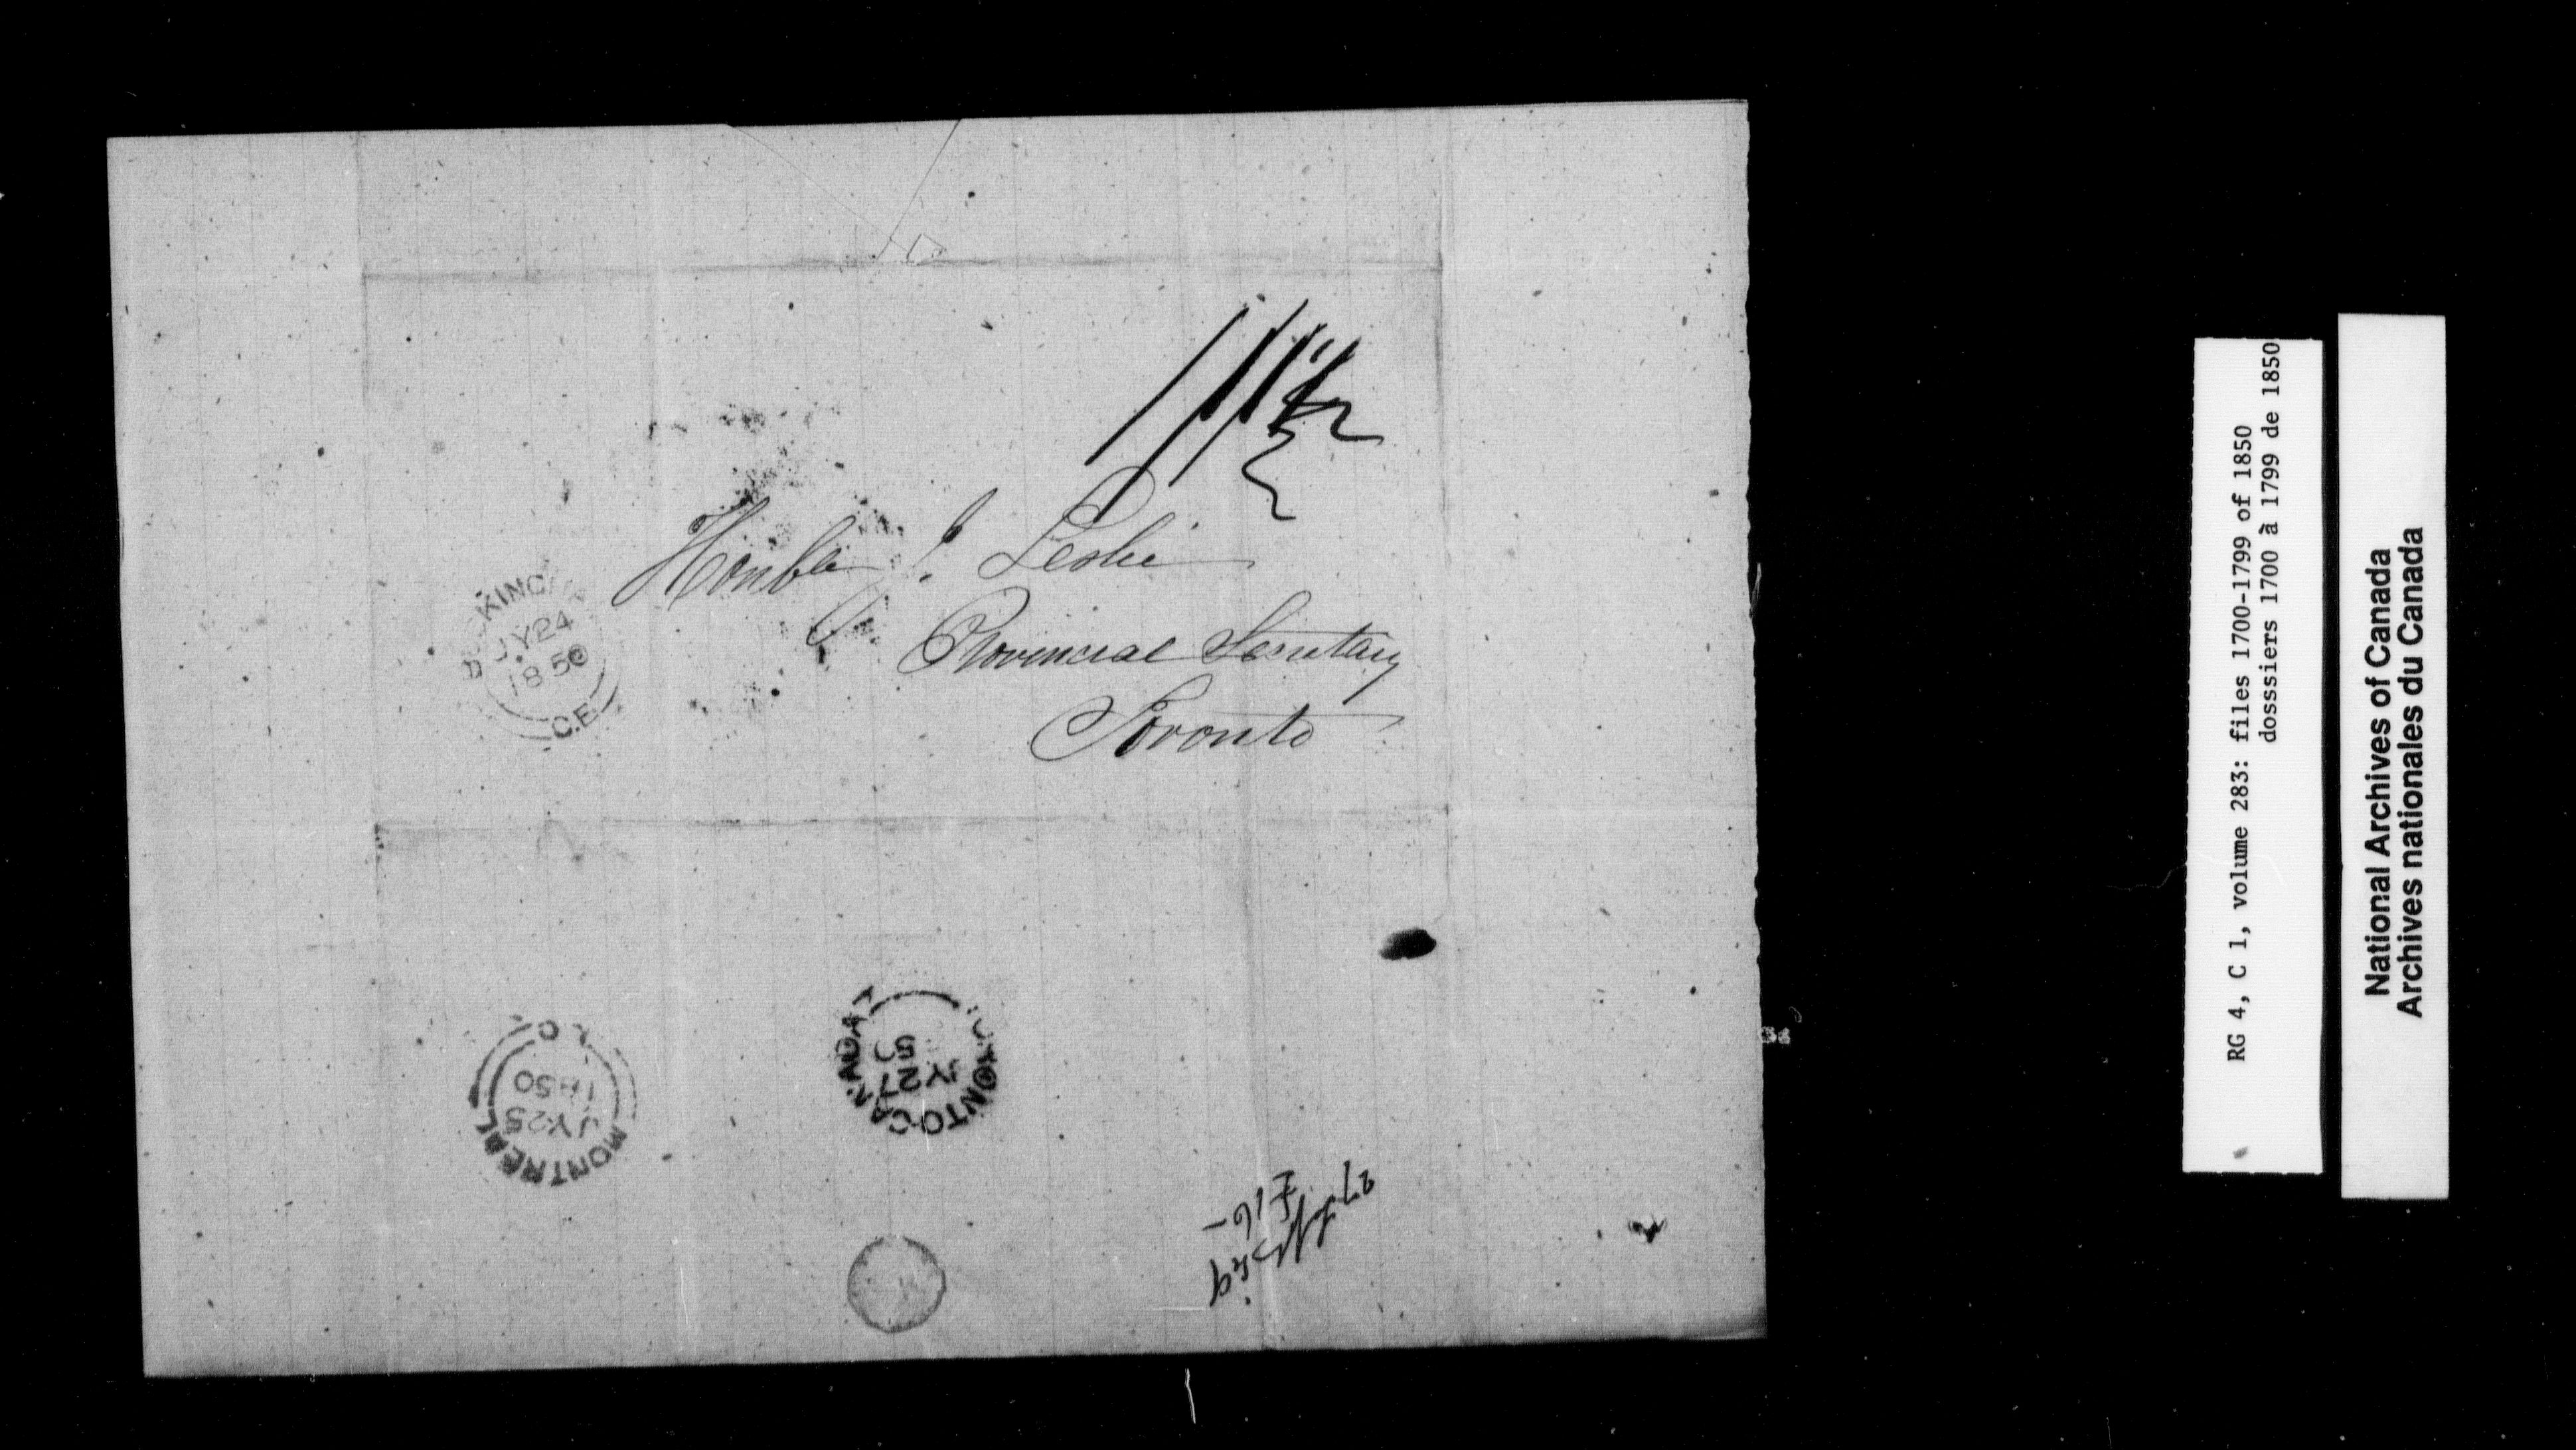 Honble J. Leslie
Provincial Secretary
Toronto
BUCKINGHAM
JY 24
1850
C.E.
MONTREAL
JY 25
1850
TORONTO CANADA
JY 27
50
27
£16-
RG 4, C 1, volume 283: files 1700-1799 of 1850
dosssiers 1700 à 1799 de 1850
National Archives of Canada
Archives nationales du Canada